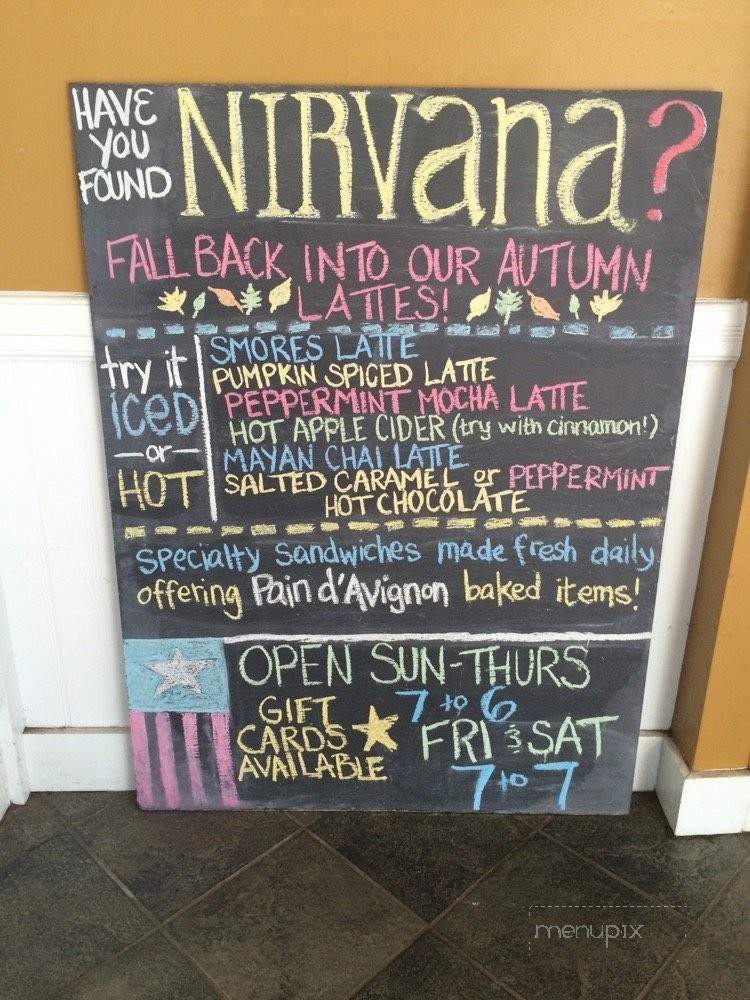 HAVE YOU FOUND NIRVana?
FALL BACK INTO OUR AUTUMN
LATTES!
try it
ICED
-or-
HOT
SMORES LATTE
PUMPKIN SPICED LATTE
PEPPERMINT MOCHA LATTE
HOT APPLE CIDER (try with cinnamon!)
MAYAN CHAI LATTE
SALTED CARAMEL or PEPPERMINT
HOT CHOCOLATE
specialty sandwiches made fresh daily
offering Pain d'Avignon baked items!
OPEN SUN-THURS
7 to 6
GIFT
CARDS
AVAILABLE
FRI & SAT
7 to 7
menupix